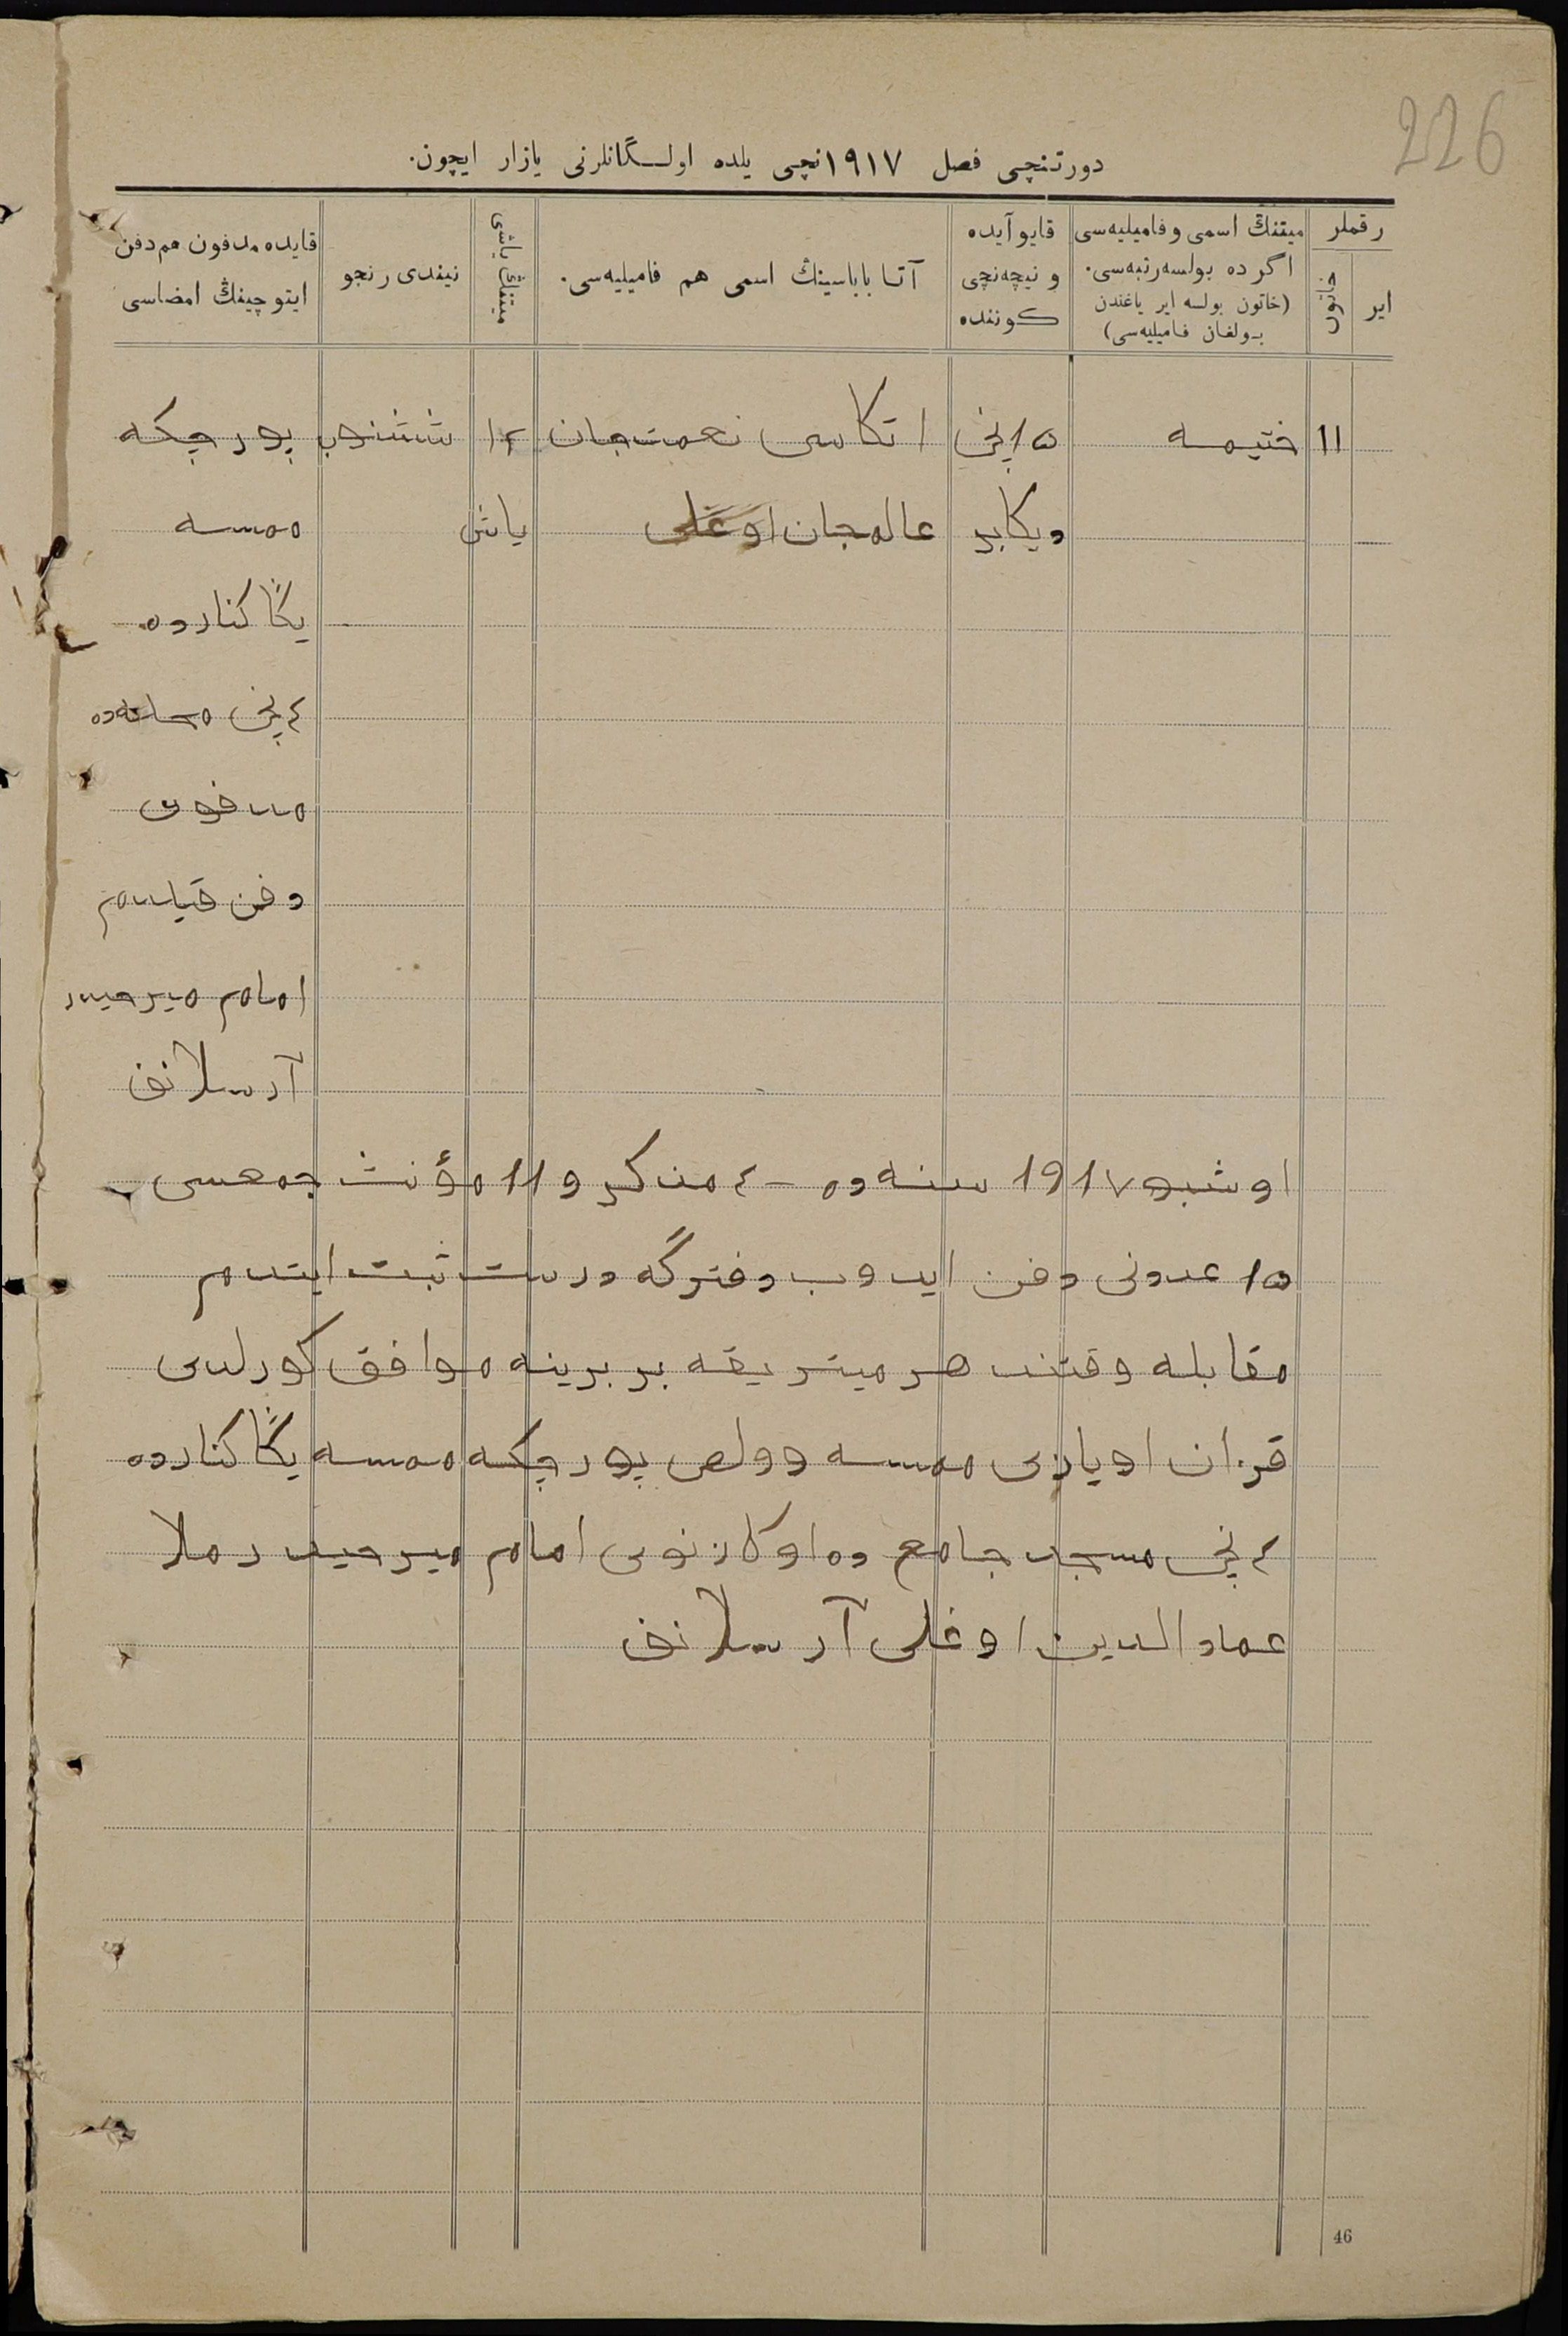 226
دورتنچی فصل ۱۹۱۷نچی یلده اولـگانلرنی یازار ایچون.
رقملر
ایر
خاتون
میتنڭ اسمی و فامیلیه‌سی
اگرده بولسه رتبه‌سی.
(خاتون بولسه ایر یاغندن
بـولغان فامیلیه‌سی)
قایو آیده
و نیچه‌نچی
كونده
آتـا باباسینڭ اسمی هم فامیلیه‌سی.
میتنڭ یاشی
نیندی رنجو
قایده مدفون هم دفن
ایتوچینڭ امضاسی
۱۱ ختیمه ۱۵نچی اتكاسی نعمت‌جان ۱۲ پورچكه
دیكابر عالمجان اوغلی یاش ممسه
یكا كنارده
۴نچی محله‌ده
مدفون
دفن قیلدم
امام میرحیدر
آرسلانف
اوشبو ۱۹۱۷ سنه‌ده ۴ مذكر و ۱۱ مؤنث جمعسی
۱۵ عددنی دفن ایدوب دفترگه درست ثبت ایتدم
مقابله وقتنده هر میتریقه بر برینه موافق كورلدی
قزان اویازی ممسه وولص پورچكه ممسه یكا كنارده
۴نچی مسجد جامع ده اوكازنوی امام میرحیدر ملا
عمادالدین اوغلی آرسلانف
46